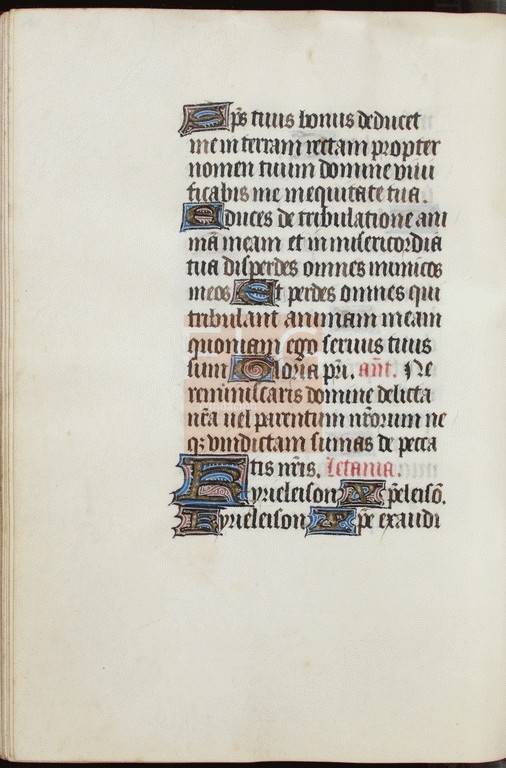 Sp̄s tuus bonus deducet
me in terram rectam propter
nomen tuum domine viui
ficabis me in equitate tua.
Educes de tribulatione ani
mā meam et in misericordia
tua disperdes omnes inimicos
meos Et perdes omnes qui
tribulant animam meam
quoniam ego seruus tuus
sum Gloria pr̄i. ān̄t. Ne
reminiscaris domine delicta
nr̄a uel parentum nr̄orum ne
qꝫ vindictam sumas de pecca
tis nr̄is. Letania.
Kyrieleison Xp̄eleisō.
Kyrieleison Xp̄e exaudi